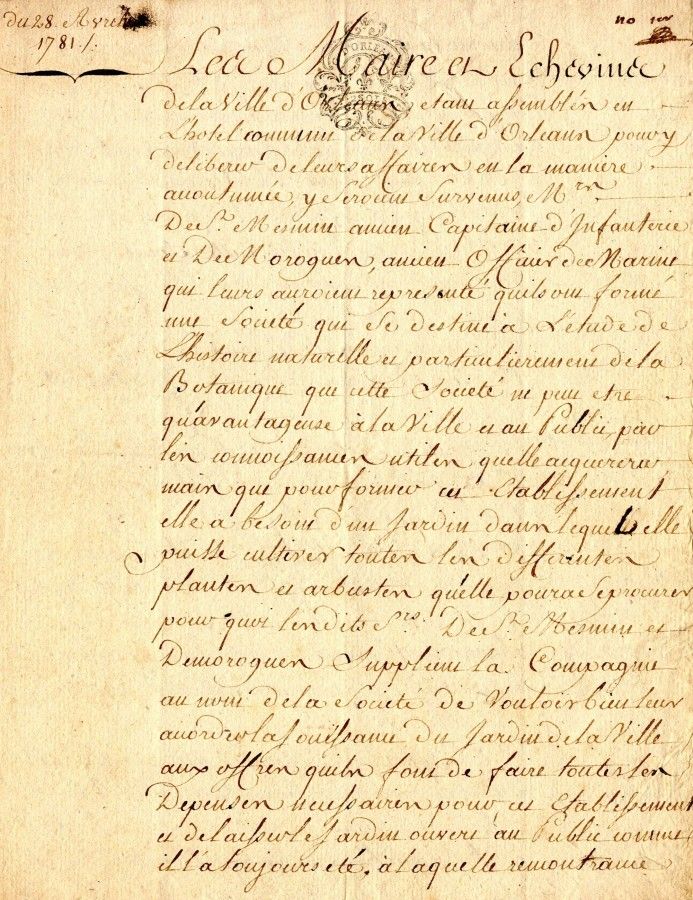 Du 28. Avril
1781 ./.
no 1er
Les Maire et Echevins
de la Ville d'Orleans, etant assemblés en
L'hotel commun de la Ville d'Orleans pour y
deliberer de leurs affaires en la maniere
accoutumée, y seroient survenus, Mrs.
De St. Mesmin ancien Capitaine d'Infanterie
et De Morogues, ancien Officier des Marine
qui leurs auroient representé quils ont formé
une Société qui se destine a L'étude de
L'histoire naturelle et particulierement de la
Botanique que cette Société ne peut etre
qu'avantageuse à la Ville et au Public, par
les connoissances utiles quelle acquerera
mais que pour former cet Etablissement
elle a besoin d'un Jardin dans lequel elle
puisse cultiver toutes les differentes
plantes et arbustes qu'elle poura se procurer
pour quoi lesdits Srs. De St. Mesmin et
Demorogues Supplient la Compagnie
au nom de la Société de Vouloir bien leur
accorder la Jouissance du Jardin de la Ville
aux offres quils font de faire toutes les
Depenses necessaires pour cet Etablissement
et de laisser le Jardin ouvert au Public comme
il l'a toujours eté. à laquelle remontrance